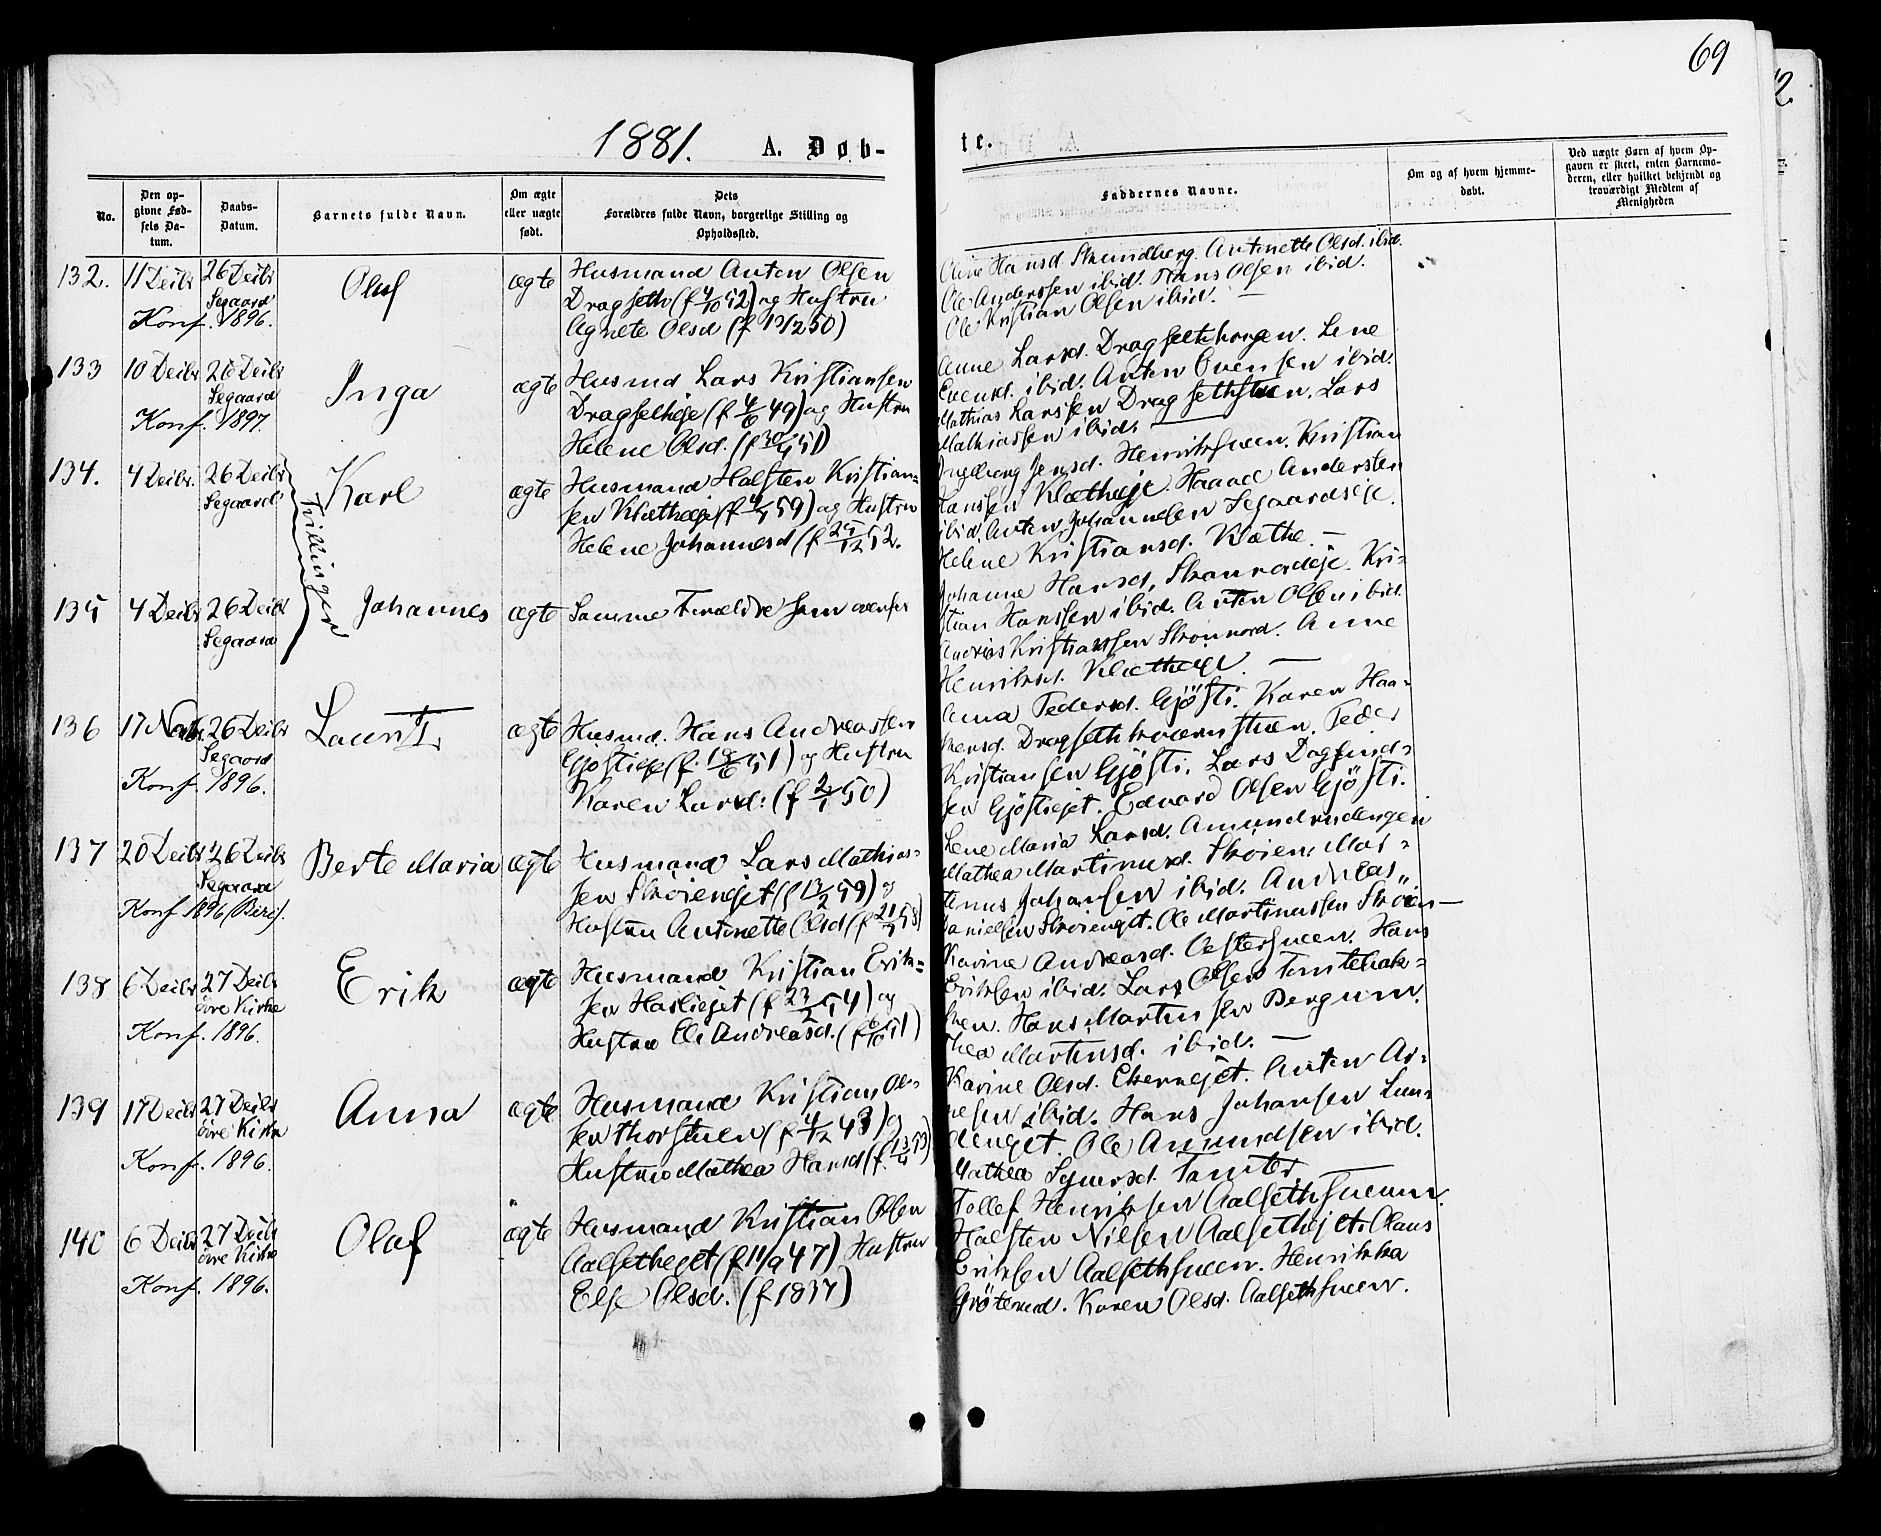 69
1881.
A. Døb-
te.
No.
Den op-
givne Fød-
sels Da-
tum.
Daabs-
Datum.
Barnets fulde Navn.
Om ægte
eller uægte
født.
Dets
Forældres fulde Navn, borgerlige Stilling og
Opholdssted.
Faddernes Navne.
Om og af hvem hjemme-
døbt.
Ved uægte Barn af hvem Op-
gaven er skeet, enten Barnemo-
deren, eller hvilket bekjendt og
troværdigt Medlem af
Menigheden
132.
11 Decbr
26 Decbr
Segaard
Konf. 1896.
Oluf
ægte
Husmand Anton Olsen
Dragseth (f 4/10 52) og Hustru
Agnete Olsd (f 19/2 50)
Hansd Strundberg. Antonette Olsd. ibid.
Ole Anderssen ibid. Hans Olsen ibid.
Ole Kristian Olsen ibid. —
133
10 Decbr
26 Decbr
Segaard
Konf. 1897.
Inga
ægte
Husmd Lars Kristiansen
Dragsetheje (f 4/6 49) og Hustru
Helene Olsd. (f 30/1 51)
Anne Larsd. Dragsethhougen. Lene
Evensd. ibid. Anton Evensen ibid.
Mathias Larssen Dragsethstuen. Lars
Mathiassen ibid. —
134.
4 Decbr.
26 Decbr
Segaard
Tvillinger
Karl
ægte
Husmand Halsten Kristian-
sen Klætheje (f 4/1 59) og Hustru
Helene Johannesd (f 25/12 52.
Ingeborg Jensd. Henrikssveen. Kristian
Hanssen Klætheje. Haaver Andersten
ibid. Anton Johannesen Segaardseje.
Helene Kristiansd. Klæthe. —
135
4 Decbr
26 Decbr
Segaard
Johannes
ægte
Samme Forældre som ovenfor
Johanne Hansd. Skonnordeje. Kri-
stian Hanssen ibid. Anton Olsen ibid.
Andreas Kristianssen Skonnord. Anne
Henriksd. Klætheje —
136
17 Novbr.
26 Decbr
Segaard
Konf. 1896.
Lauritz
ægte
Husmd. Hans Andreassen
Gjøstieje (f. 18/6 51) og Hustru
Karen Larsd: (f 2/1 50)
Anna Pedersd. Gjøsti. Karen Haa-
kensd. Dragsethkvernstuen. Peder
Kristiansen Gjøsti. Lars Dagfind-
sen Gjøstiejet. Edvard Olsen Gjøsti.
137
20 Decbr
26 Decbr
Segaard
Konf 1896 (Biri).
Berte Maria
ægte
Husmand Lars Mathias-
sen Skøienejet (f 13/2 59) og
Hustru Antonette Olsd (f 21/7 58)
Lene Maria Larsd. Amundrudengen
Mathea Martinusd. Skøien. Mar-
tinus Johansen ibid. Andreas
Danielsen Skøienejet. Ole Martinussen Skøien —
138
6 Decbr
27 Decbr
øvre Kirke
Konf. 1896.
Erik
ægte
Husmand Kristian Erik-
sen Haslieget (f 23/2 54) og
Hustru Eli Andreasd. (f 6/10 51)
Karine Andreasd. Oestersveen. Hans
Eriksen ibid. Lars Olsen Tomtebak-
ken. Hans Martinsen Bergum.
Thea Martinsd. ibid. —
139
17 Decbr
27 Decbr
øvre Kirke
Konf. 1896.
Anna
ægte
Husmand Kristian Ol-
sen Thorstuen (f 4/12 43) og
Hustru Mathea Hansd (f. 13/4 53)
Karine Olsd. Ekernejet. Anton Ar-
nesen ibid. Hans Johansen Lun-
denget. Ole Amundsen ibid.
Mathea Syversd. Tomter.
140
6 Decbr
27 Decbr
øvre Kirke
Konf. 1896.
Olaf
ægte
Husmand Kristian Olsen
Aalsethejet (f 11/9 47) Hustru
Else Olsd. (f 1837)
Tollef Henriksen Aalsethsveen.
Halsten Nilsen Aalsethejet. Olaus
Eriksen Aalsethsveen. Henrikka
Grøterud. Karen Olsd. Aalsethsveen.